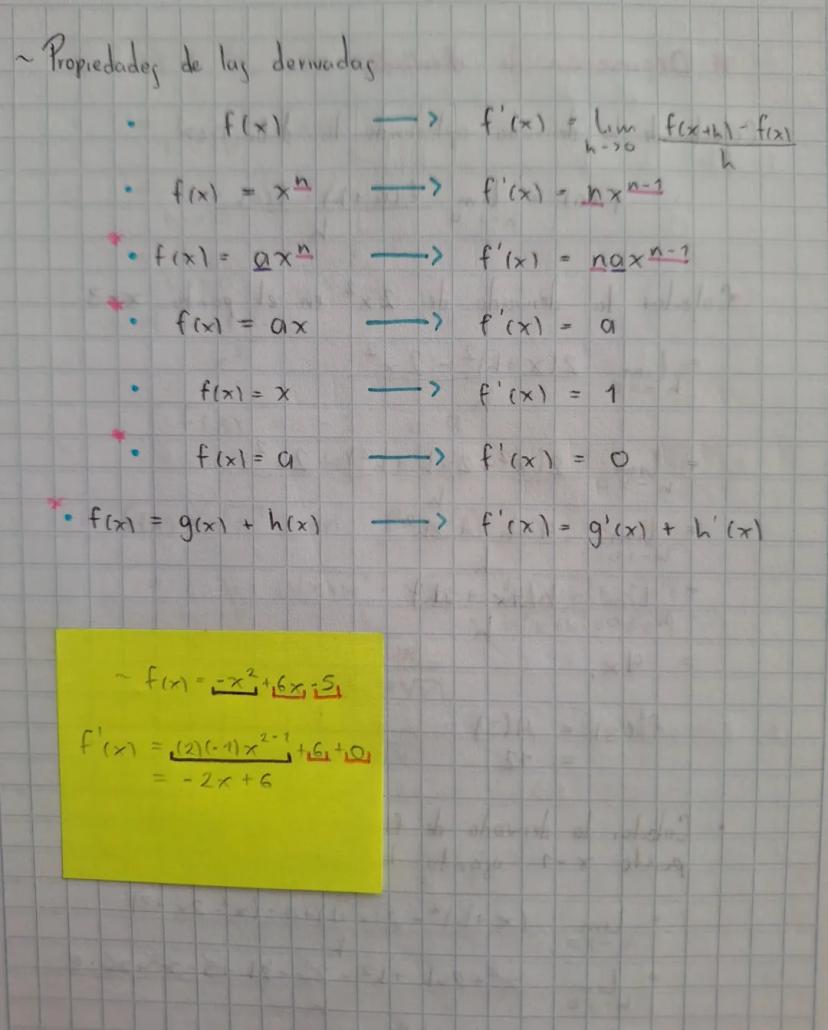 ~ Propiedades de las derivadas
• f(x) → f'(x) = lim h->0 f(x+h) - f(x) / h
• f(x) = xⁿ → f'(x) = nxⁿ⁻¹
* • f(x) = axⁿ → f'(x) = naxⁿ⁻¹
* • f(x) = ax → f'(x) = a
• f(x) = x → f'(x) = 1
* • f(x) = a → f'(x) = 0
* • f(x) = g(x) + h(x) → f'(x) = g'(x) + h'(x)
~ f(x) = -x² + 6x - 5
f'(x) = (2)(-1)x²⁻¹ + 6 + 0
= -2x + 6